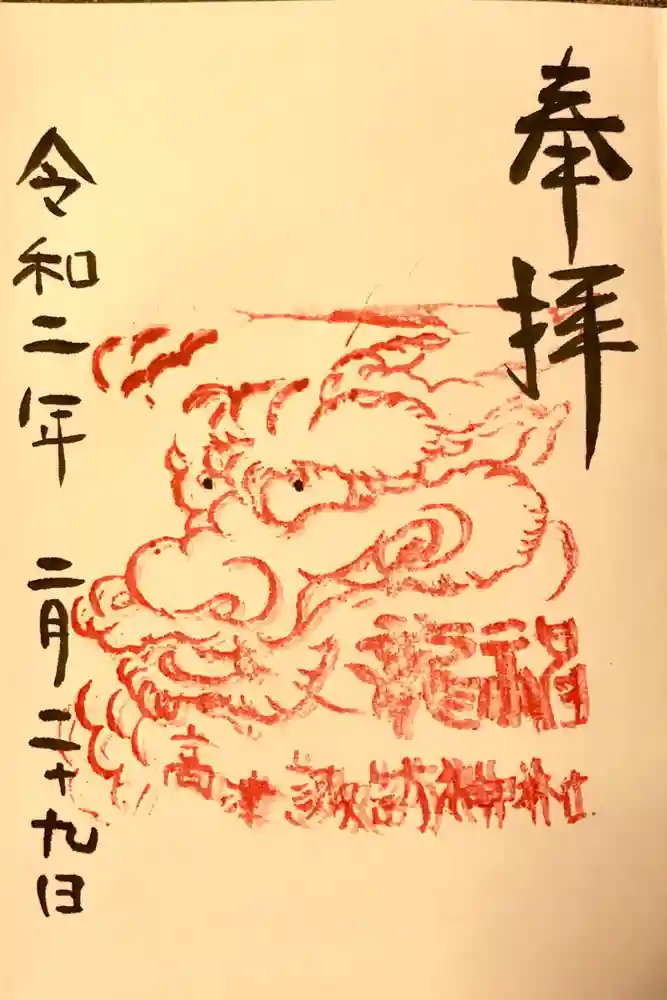 奉拝
龍福
高津諏訪神社
令和二年 二月二十九日